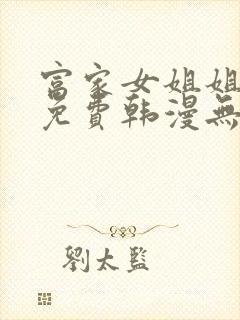 富家女姐姐
免費韩漫無
劉太監